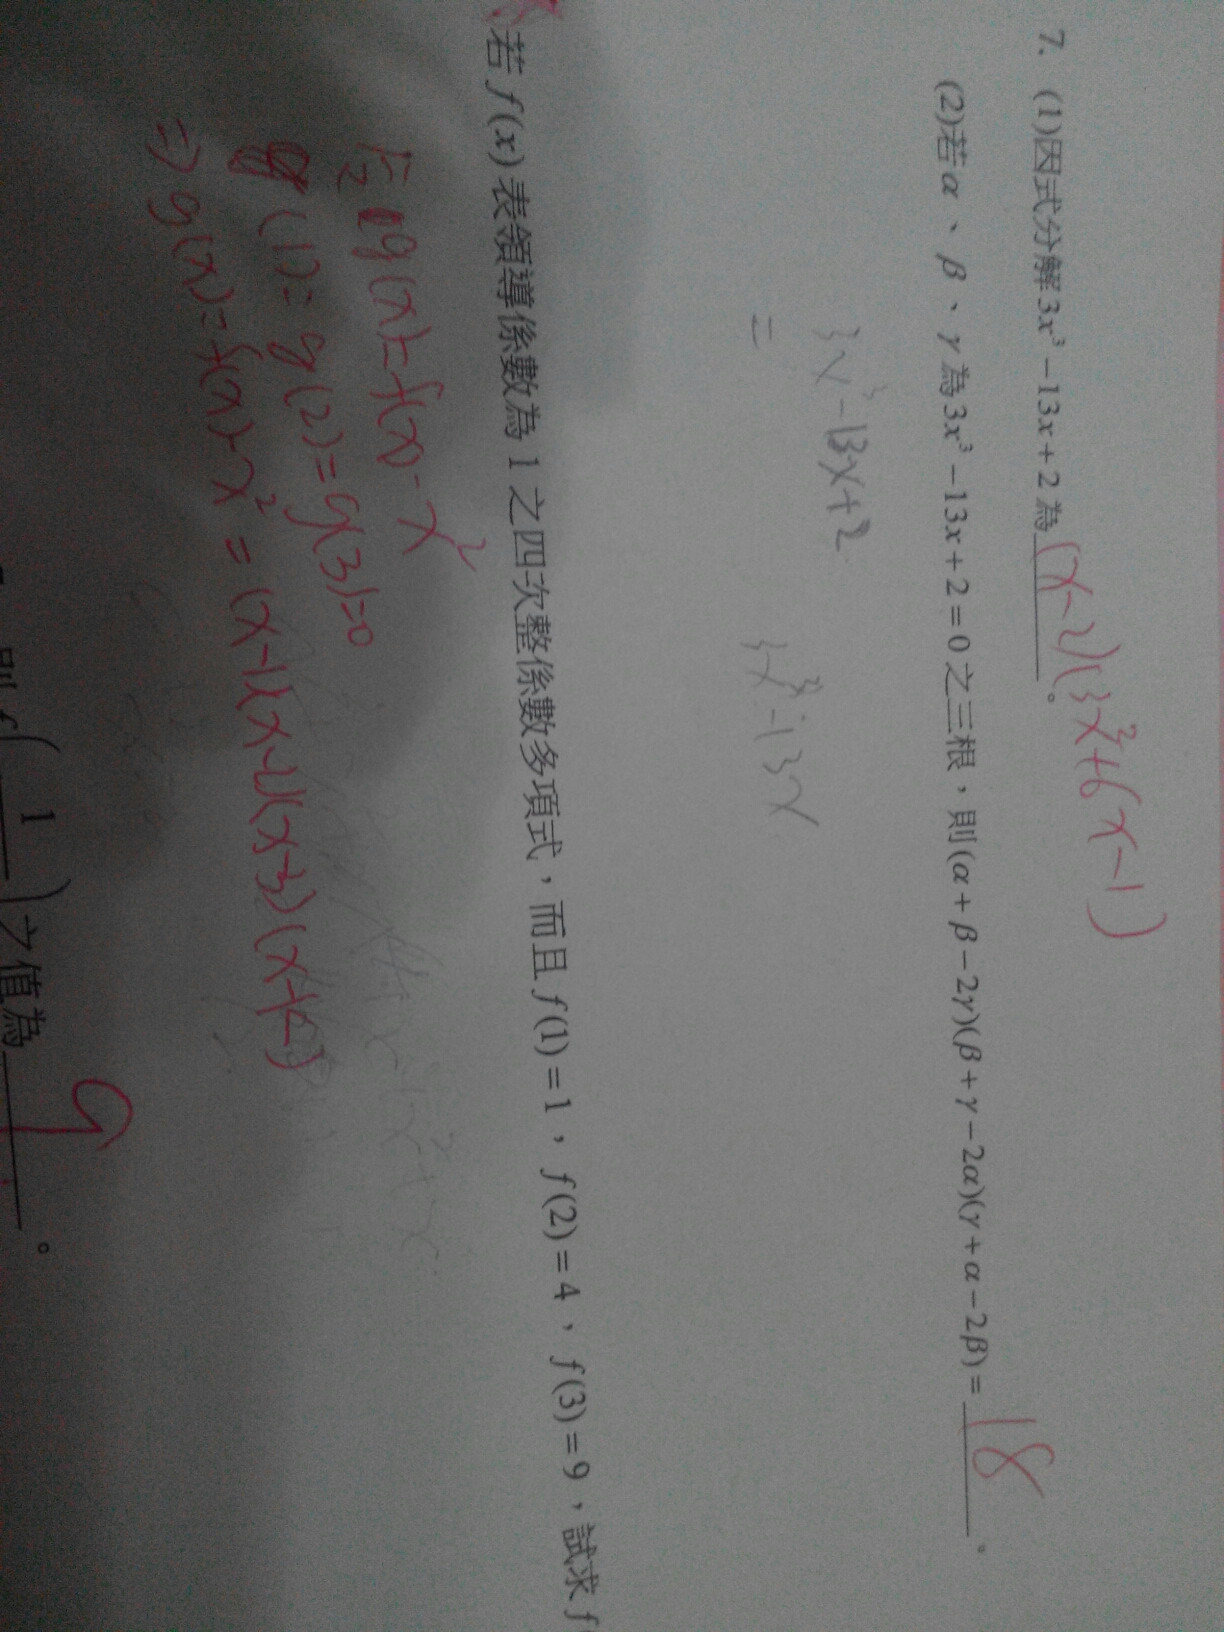 7. (1)因式分解3x³−13x+2為 (x-2)(3x²+6x-1) 。
(2)若α、β、γ為3x³−13x+2=0之三根,則(α+β−2γ)(β+γ−2α)(γ+α−2β)= 18 。
3x³-13x+2
= 3x³-13x
若f(x)表領導係數為1之四次整係數多項式,而且f(1)=1,f(2)=4,f(3)=9,試求f
g(x)=f(x)-x²
g(1)=g(2)=g(3)=0
⇒g(x)=f(x)-x²=(x-1)(x-2)(x-3)
則f(1)之值為 9 。